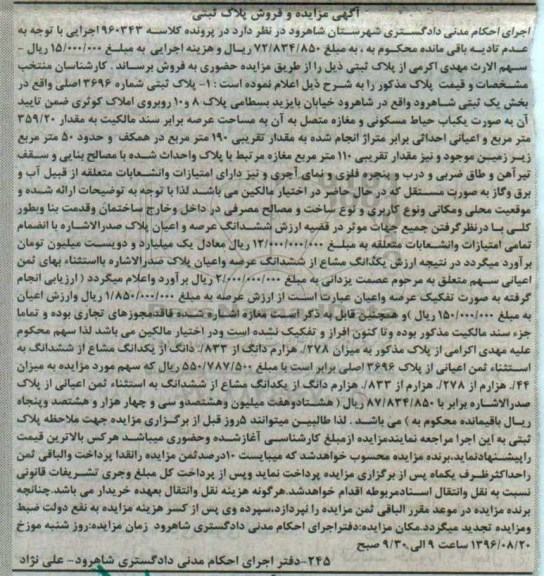 آگهی مزایده و فروش پلاک ثبتی
اجرای احکام مدنی دادگستری شهرستان شاهرود در نظر دارد در پرونده کلاسه ۹۶۰۳۴۳اجرایی با توجه به
عدم تادیه باقی مانده محکوم به ، به مبلغ ۷۲/۸۳۴/۸۵۰ ریال و هزینه اجرایی به مبلغ ۱۵/۰۰۰/۰۰۰ ریال -
سهم الارث مهدی اکرمی از پلاک ثبتی ذیل را از طریق مزایده حضوری به فروش برساند . کارشناسان منتخب
مشخصات و قیمت پلاک مذکور را به شرح ذیل اعلام نموده است : ۱- پلاک ثبتی شماره ۳۶۹۶ اصلی واقع در
بخش یک ثبتی شاهرود واقع در شاهرود خیابان بایزید بسطامی پلاک ۸ و۱۰ روبروی املاک کوثری ضمن تایید
آن به صورت یکباب حیاط مسکونی و مغازه متصل به آن به مساحت عرصه برابر سند مالکیت به مقدار ۳۵۹/۲۰
متر مربع و اعیانی احداثی برابر متراژ انجام شده به مقدار تقریبی ۱۹۰ متر مربع در همکف و حدود ۵۰ متر مربع
زیر زمین موجود و نیز مقدار تقریبی ۱۱۰ متر مربع مغازه مرتبط با پلاک واحداث شده با مصالح بنایی و سقف
تیرآهن و طاق ضربی و درب و پنجره فلزی و نمای آجری و نیز دارای امتیازات وانشعابات متعلقه از قبیل آب و
برق وگاز به صورت مستقل که در حال حاضر در اختیار مالکین می باشد لذا با توجه به توضیحات ارائه شده و
موقعیت محلی ومکانی ونوع کاربری و نوع ساخت و مصالح مصرفی در داخل وخارج ساختمان وقدمت بنا وبطور
کلی بـا درنظرگرفتن جمیع جهات موثر در قضیه ارزش ششدانگ عرصه و اعیان پلاک صدرالاشاره با انضمام
تمامی امتیازات وانشعابات متعلقه به مبلغ ۱۲/۰۰۰/۰۰۰/۰۰۰ ریال معادل یک میلیارد و دویست میلیون تومان
برآورد میگردد در نتیجه ارزش یکدانگ مشاع از ششدانگ عرصه واعیان پلاک صدرالاشاره بااستثناء بهای ثمن
اعیانی سهم متعلق به مرحوم عصمت یزدانی به مبلغ ۲/۰۰۰/۰۰۰/۰۰۰ ریال برآورد واعلام میگردد ( ارزیابی انجام
گرفته به صورت تفکیک عرصه واعیان عبارت است از ارزش عرصه به مبلغ ۱/۸۵۰/۰۰۰/۰۰۰ ریال وارزش اعیان
به مبلغ ۱۵۰/۰۰۰/۰۰۰ ریال )و همچنین قابل به ذکر است مغازه اشاره شده فاقدمجوزهای تجاری بوده و تماما
جزء سند مالکیت مذکور بوده وتا کنون افراز و تفکیک نشده است ودر اختیار مالکین می باشد لذا سهم محکوم
علیه مهدی اکرامی از پلاک مذکور به میزان ۲۷۸/. هزارم دانگ از ۸۳۳/. دانگ از یکدانگ مشاع از ششدانگ به
استثناء ثمن اعیانی از پلاک ۳۶۹۶ اصلی برابر است با مبلغ ۵۵۰/۷۸۷/۵۰۰ ریال که سهم مورد مزایده به میزان
۴۴/. هزارم از ۲۷۸/. هزارم از ۸۳۳/. هزارم دانگ از یکدانگ مشاع از ششدانگ به استثناء ثمن اعیانی از پلاک
صدرالاشاره برابر با ۸۷/۸۳۴/۸۵۰ ریال ( هشتادوهفت میلیون وهشتصدو سی و چهار هزار و هشتصد وپنجاه
ریال باقیمانده محکوم به ) می باشد . لذا طالبین میتوانند ۵روز قبل از برگزاری مزایده جهت ملاحظه پلاک
ثبتی به این اجرا مراجعه نمایندمزایده ازمبلغ کارشناسی آغازشده وحضوری میباشد هرکس بالاترین قیمت
راپیشنهادنماید،برنده مزایده محسوب خواهدشد که میبایست ۱۰درصدثمن مزایده رانقدا پرداخت والباقی ثمن
راحداکثرظرف یکماه پس از برگزاری مزایده پرداخت نماید وپس از پرداخت کل مبلغ وجری تشریفات قانونی
نسبت به نقل وانتقال اسنادمربوطه اقدام خواهدشد.هرگونه هزینه نقل وانتقال بعهده خریدار می باشد.چنانچه
برنده مزایده در موعد مقرر الباقی ثمن مزایده را نپردازد،سپرده وی پس از کسر هزینه مزایده به نفع دولت ضبط
ومزایده تجدید میگردد.مکان مزایده:دفتراجرای احکام مدنی دادگستری شاهرود زمان مزایده:روز شنبه مورخ
۱۳۹۶/۰۸/۲۰ ساعت ۹ الی ۹/۳۰ صبح
۲۴۵-دفتر اجرای احکام مدنی دادگستری شاهرود- علی نژاد